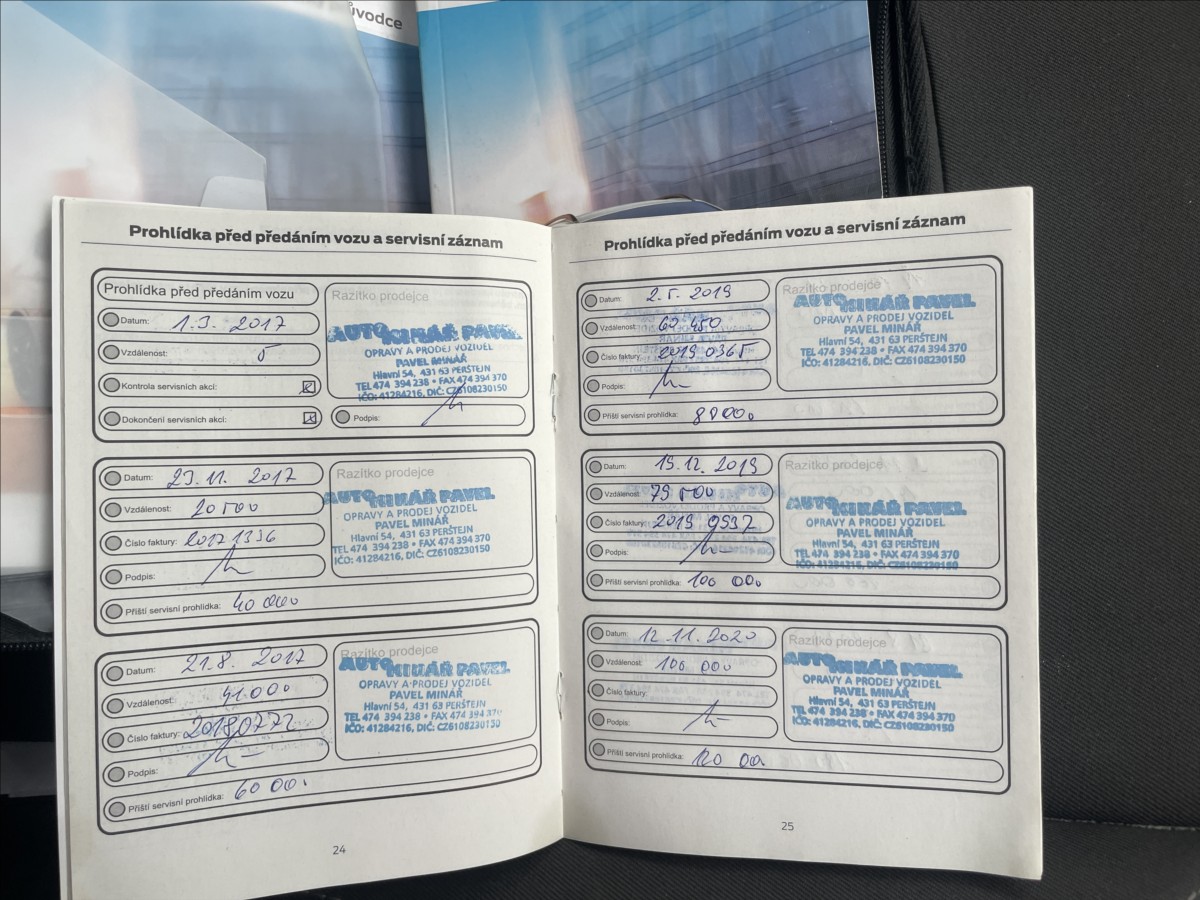 ůvodce
Prohlídka před předáním vozu a servisní záznam
Prohlídka před předáním vozu
Datum: 1.3. 2017
Vzdálenost: 5
Kontrola servisních akcí:
Dokončení servisních akcí:
Razítko prodejce
AUTO MINÁŘ PAVEL
OPRAVY A PRODEJ VOZIDEL
PAVEL MINÁŘ
Hlavní 54, 431 63 PERŠTEJN
TEL 474 394 238 • FAX 474 394 370
IČO: 41284216, DIČ: CZ6108230150
Podpis:
Datum: 23.11. 2017
Vzdálenost: 20 500
Číslo faktury: 20171336
Podpis:
Příští servisní prohlídka: 40 000
Razítko prodejce
AUTO MINÁŘ PAVEL
OPRAVY A PRODEJ VOZIDEL
PAVEL MINÁŘ
Hlavní 54, 431 63 PERŠTEJN
TEL 474 394 238 • FAX 474 394 370
IČO: 41284216, DIČ: CZ6108230150
Datum: 21.8. 2017
Vzdálenost: 41.000
Číslo faktury: 20180772
Podpis:
Příští servisní prohlídka: 60 000
Razítko prodejce
AUTO MINÁŘ PAVEL
OPRAVY A PRODEJ VOZIDEL
PAVEL MINÁŘ
Hlavní 54, 431 63 PERŠTEJN
TEL 474 394 238 • FAX 474 394 370
IČO: 41284216, DIČ: CZ6108230150
24
Prohlídka před předáním vozu a servisní záznam
Datum: 2.5. 2019
Vzdálenost: 450
Číslo faktury: 2019 0365
Podpis:
Příští servisní prohlídka:
Razítko prodejce
AUTO MINÁŘ PAVEL
OPRAVY A PRODEJ VOZIDEL
PAVEL MINÁŘ
Hlavní 54, 431 63 PERŠTEJN
TEL 474 394 238 • FAX 474 394 370
IČO: 41284216, DIČ: CZ6108230150
Datum: 19.12. 2019
Vzdálenost: 79 500
Číslo faktury: 2019 0937
Podpis:
Příští servisní prohlídka: 100 000
Razítko prodejce
AUTO MINÁŘ PAVEL
OPRAVY A PRODEJ VOZIDEL
PAVEL MINÁŘ
Hlavní 54, 431 63 PERŠTEJN
TEL 474 394 238 • FAX 474 394 370
IČO: 41284216, DIČ: CZ6108230150
Datum: 12.11.2020
Vzdálenost: 100 000
Číslo faktury:
Podpis:
Příští servisní prohlídka: 120 000
Razítko prodejce
AUTO MINÁŘ PAVEL
OPRAVY A PRODEJ VOZIDEL
PAVEL MINÁŘ
Hlavní 54, 431 63 PERŠTEJN
TEL 474 394 238 • FAX 474 394 370
IČO: 41284216, DIČ: CZ6108230150
25